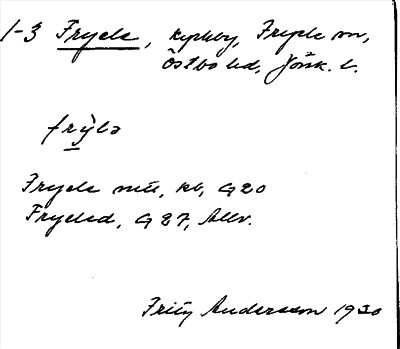 1-3 Fryele, kyrkby, Fryele sn,
Östbo hd, Jönk. l.
frỳlə
Fryele nu, kb, G20
Fryeled, G27, Allv.
Fritz Andersson 1930